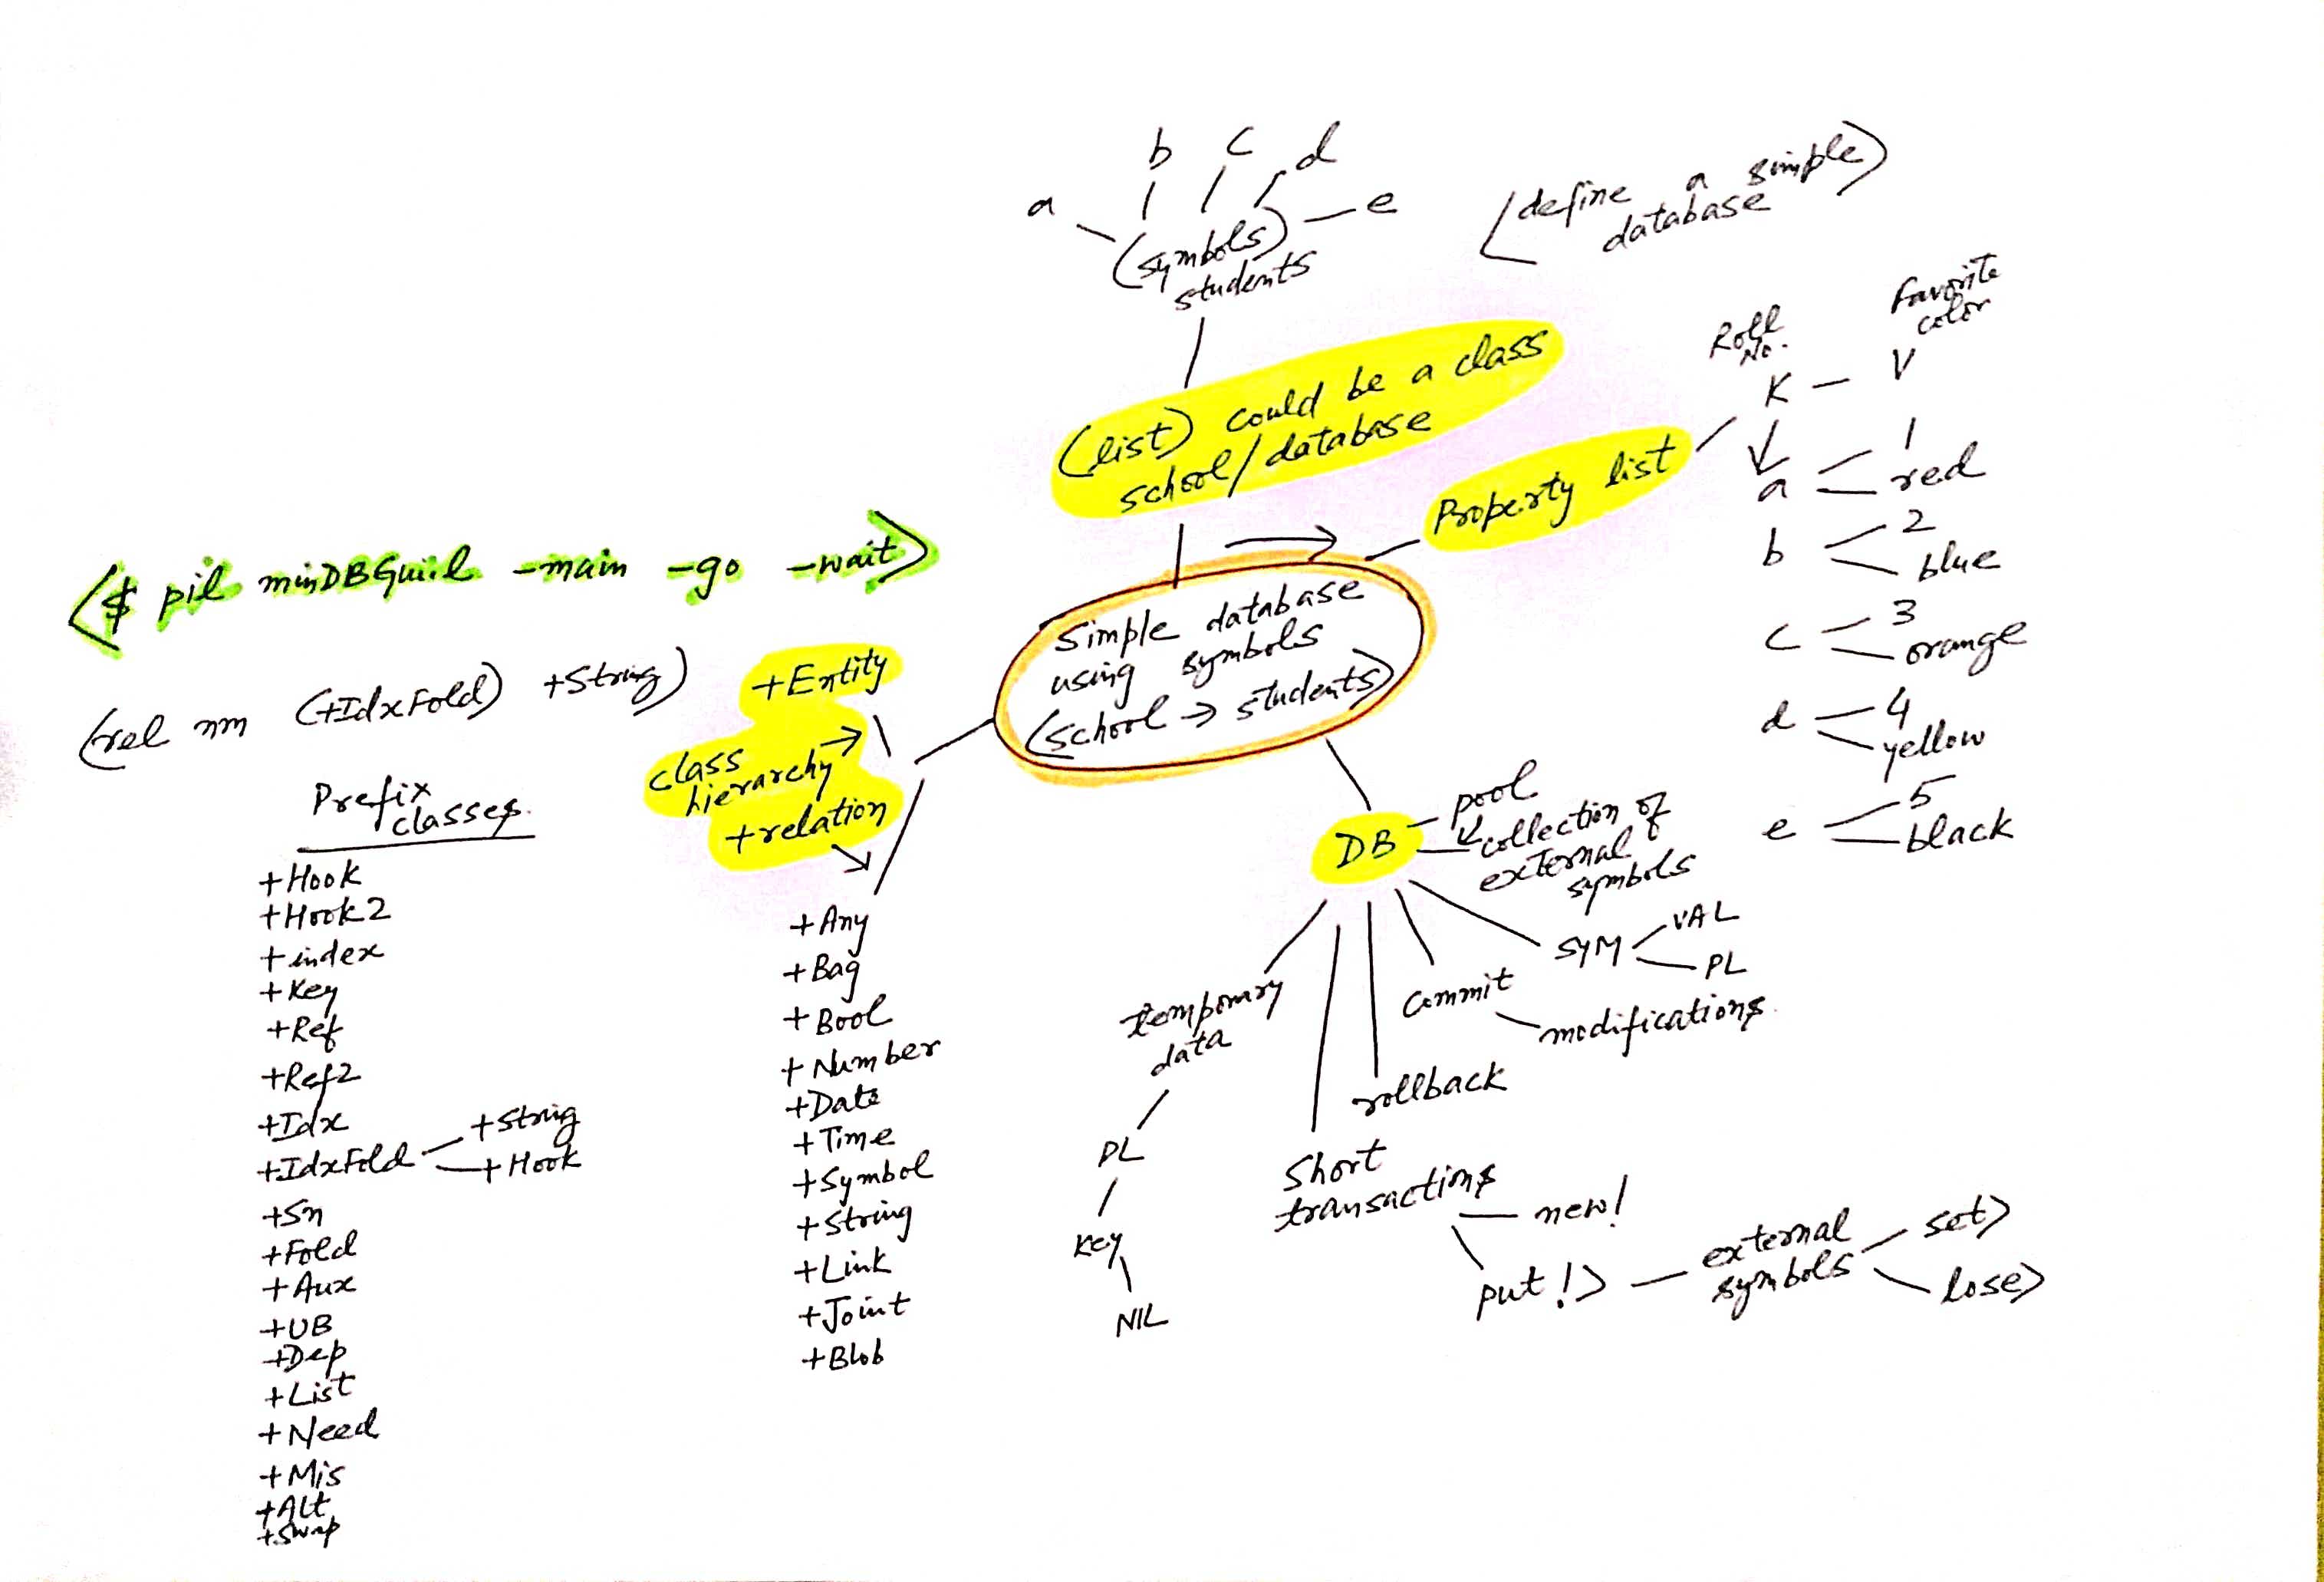 b c d
a e
(symbols)
students
<define a simple>
database
(list) could be a class
school/database
Property list
Roll No.
Favorite color
K – V
a 1
red
b 2
blue
c 3
orange
d 4
yellow
e 5
black
<$ pil -main -go -wait>
(rel nm (+IdxFold) +String)
+Entity
class
hierarchy →
+relation
simple database
using symbols
(school → students)
Prefix
classes.
+Hook
+Hook2
+index
+Key
+Ref
+Ref2
+Idx
+IdxFold
+String
+Hook
+Sn
+Fold
+Aux
+UB
+Dep
+List
+Need
+Mis
+Alt
+Swap
+Any
+Bag
+Bool
+Number
+Date
+Time
+Symbol
+String
+Link
+Joint
+Blob
DB
pool
collection of
external
symbols
SYM
VAL
PL
commit
modifications.
rollback
short
transactions
new!
put!>
external
symbols
set>
lose>
temporary
data
PL
Key
NIL